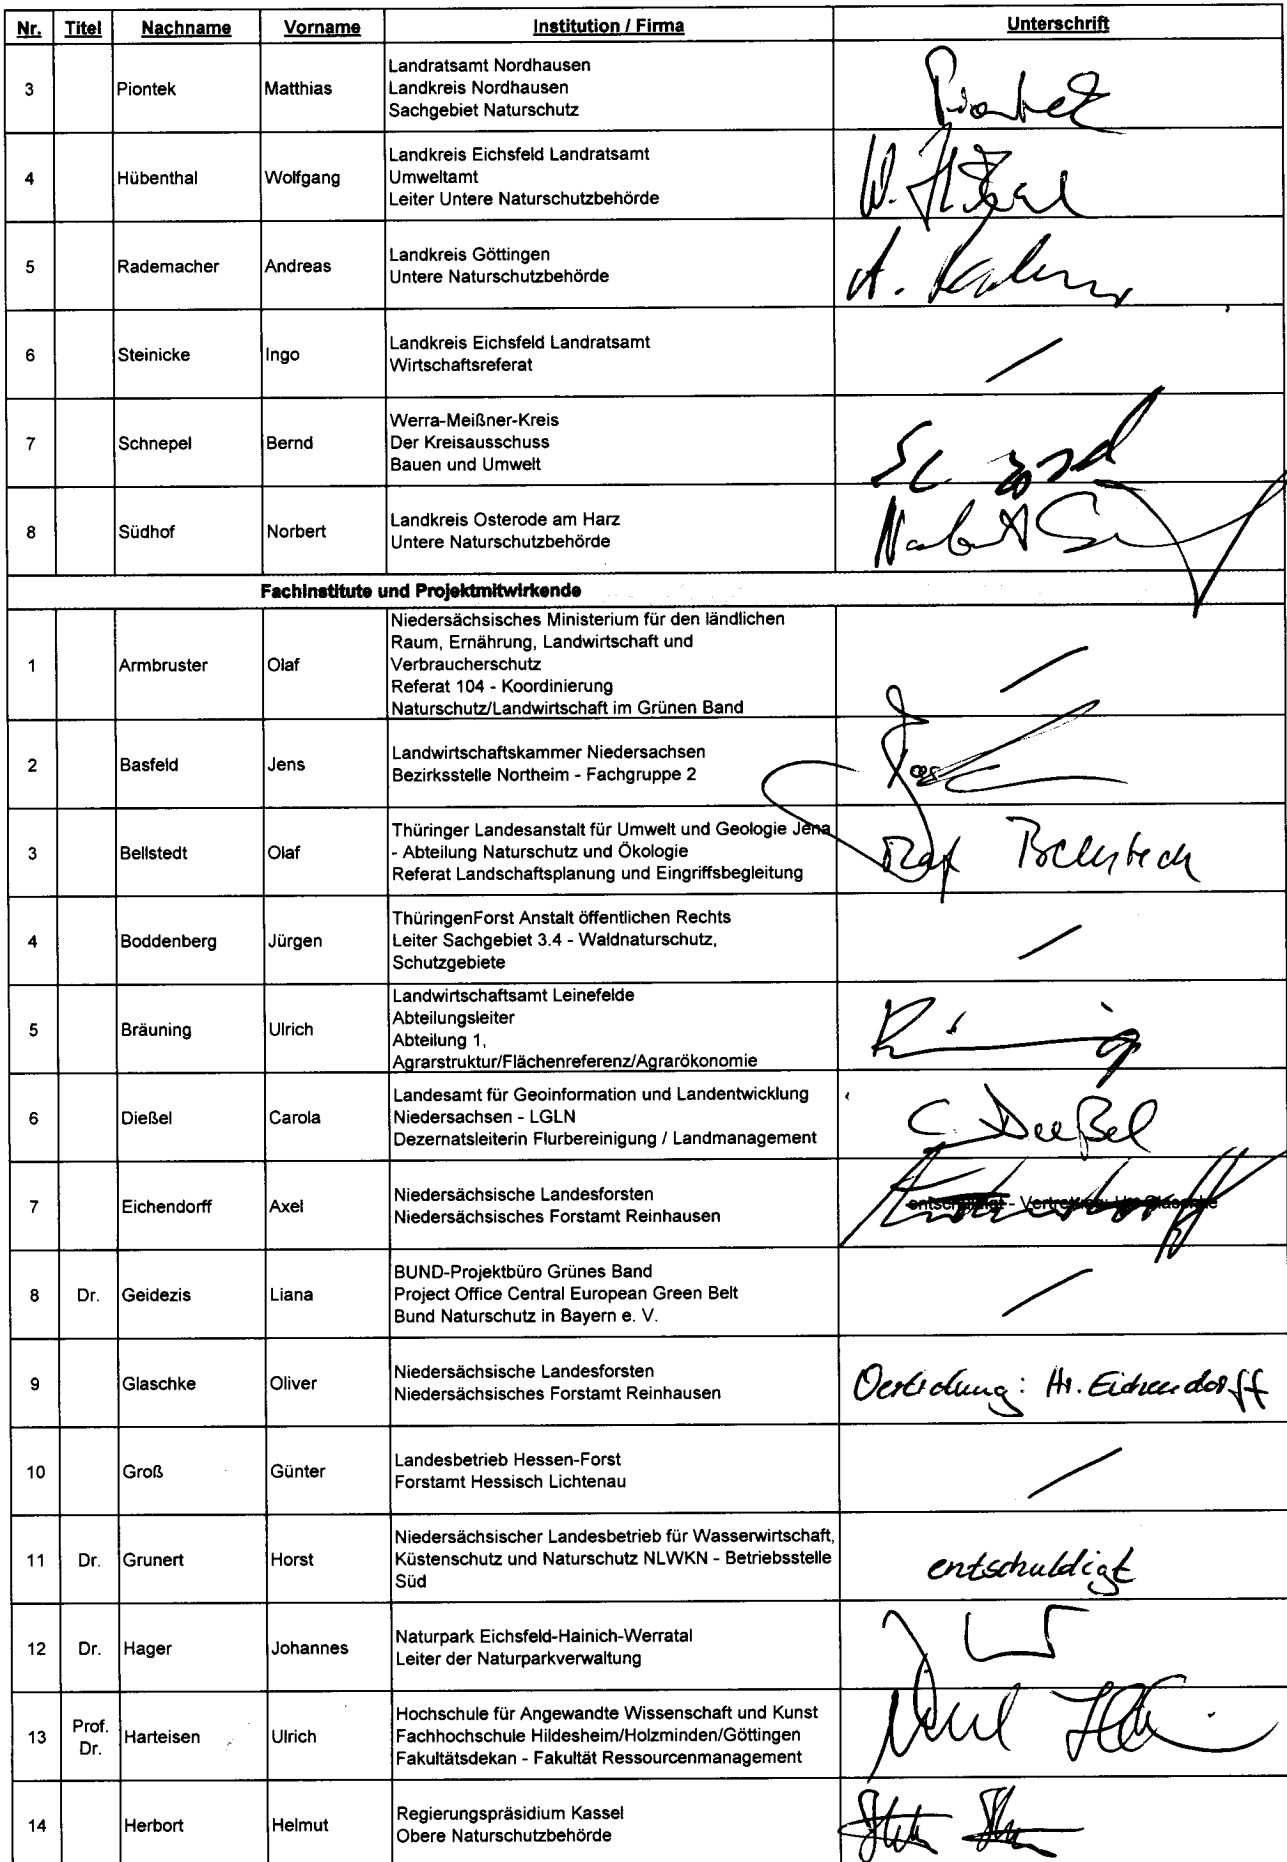 Nr. Titel Nachname Vorname Institution / Firma Unterschrift
3 Piontek Matthias Landratsamt Nordhausen
Landkreis Nordhausen
Sachgebiet Naturschutz
Piontek
4 Hübenthal Wolfgang Landkreis Eichsfeld Landratsamt
Umweltamt
Leiter Untere Naturschutzbehörde
W.
5 Rademacher Andreas Landkreis Göttingen
Untere Naturschutzbehörde
A.
6 Steinicke Ingo Landkreis Eichsfeld Landratsamt
Wirtschaftsreferat
7 Schnepel Bernd Werra-Meißner-Kreis
Der Kreisausschuss
Bauen und Umwelt
8 Südhof Norbert Landkreis Osterode am Harz
Untere Naturschutzbehörde
Fachinstitute und Projektmitwirkende
1 Armbruster Olaf Niedersächsisches Ministerium für den ländlichen
Raum, Ernährung, Landwirtschaft und
Verbraucherschutz
Referat 104 - Koordinierung
Naturschutz/Landwirtschaft im Grünen Band
2 Basfeld Jens Landwirtschaftskammer Niedersachsen
Bezirksstelle Northeim - Fachgruppe 2
3 Bellstedt Olaf Thüringer Landesanstalt für Umwelt und Geologie Jena
- Abteilung Naturschutz und Ökologie
Referat Landschaftsplanung und Eingriffsbegleitung
4 Boddenberg Jürgen ThüringenForst Anstalt öffentlichen Rechts
Leiter Sachgebiet 3.4 - Waldnaturschutz,
Schutzgebiete
5 Bräuning Ulrich Landwirtschaftsamt Leinefelde
Abteilungsleiter
Abteilung 1,
Agrarstruktur/Flächenreferenz/Agrarökonomie
6 Dießel Carola Landesamt für Geoinformation und Landentwicklung
Niedersachsen - LGLN
Dezernatsleiterin Flurbereinigung / Landmanagement
C. Dießel
7 Eichendorff Axel Niedersächsische Landesforsten
Niedersächsisches Forstamt Reinhausen
entschuldigt - Vertretung: Hr. Glaschke
8 Dr. Geidezis Liana BUND-Projektbüro Grünes Band
Project Office Central European Green Belt
Bund Naturschutz in Bayern e. V.
9 Glaschke Oliver Niedersächsische Landesforsten
Niedersächsisches Forstamt Reinhausen
Vertretung: Hr. Eichendorff
10 Groß Günter Landesbetrieb Hessen-Forst
Forstamt Hessisch Lichtenau
11 Dr. Grunert Horst Niedersächsischer Landesbetrieb für Wasserwirtschaft,
Küstenschutz und Naturschutz NLWKN - Betriebsstelle
Süd
entschuldigt
12 Dr. Hager Johannes Naturpark Eichsfeld-Hainich-Werratal
Leiter der Naturparkverwaltung
13 Prof. Dr. Harteisen Ulrich Hochschule für Angewandte Wissenschaft und Kunst
Fachhochschule Hildesheim/Holzminden/Göttingen
Fakultätsdekan - Fakultät Ressourcenmanagement
14 Herbort Helmut Regierungspräsidium Kassel
Obere Naturschutzbehörde